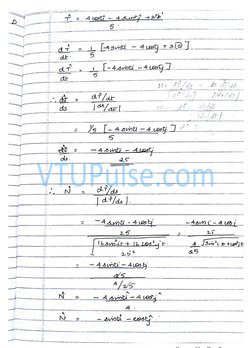 t̂ = 4cost i - 4sint j + 3k
5
dt̂/dt = 1/5 [-4sint i - 4cost j + 3(0)]
dt̂/dt = 1/5 [-4sint i - 4cost j]
∴ dt̂/ds = dt̂/dt / |dr/dt|
= 1/5 [-4sint i - 4cost j]
dt̂/ds = -4sint i - 4cost j / 25
VTUPulse.com
∴ N̂ = dt̂/ds / |dt̂/ds|
= -4sint i - 4cost j / 25 / √(16sin²t + 16cos²t / 25²) = -4sint i - 4cost j / 25 / 4/25 √(sin²t + cos²t)
= -4sint i - 4cost j / 25 / 4/25
N̂ = -4sint i - 4cost j / 4
N̂ = -sint i - cost j